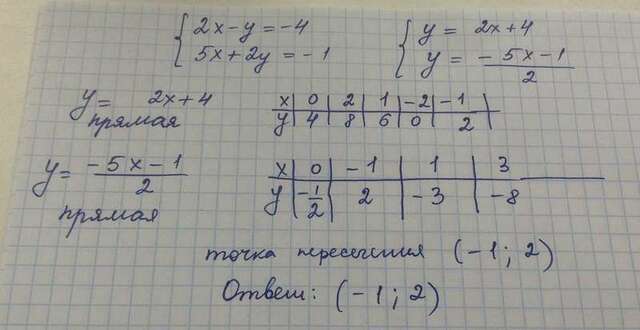 { 2x-y=-4
5x+2y=-1
{ y= 2x+4
y= -5x-1/2
y= 2x+4
прямая
x 0 2 1 -2 -1
y 4 8 6 0 2
y= -5x-1/2
прямая
x 0 -1 1 3
y -1/2 2 -3 -8
точка пересечения (-1; 2)
Ответ: (-1; 2)